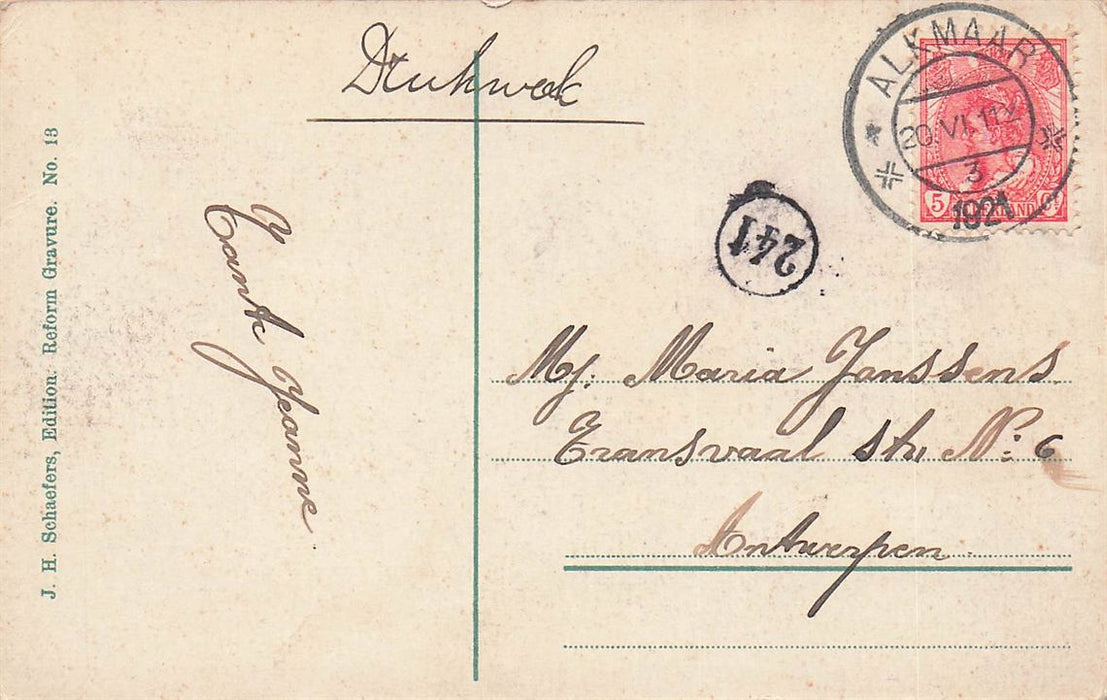 J. H. Schaefers, Edition. Reform Gravure. No. 13
Drukwerk
Tante Jeanne
ALKMAAR
20.VI.11
3
1921
5
241
Mj. Maria Janssens
Transvaal str. No: 6
Antwerpen